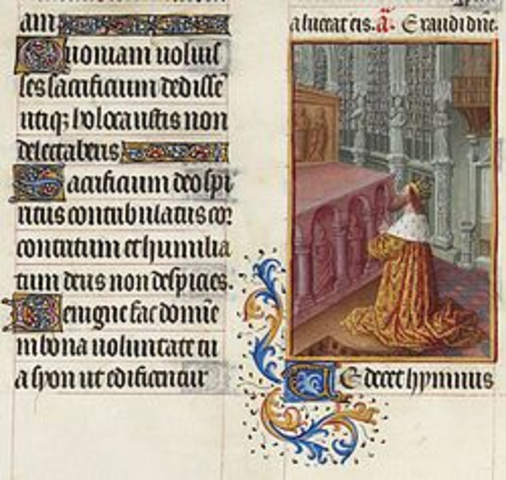 am
Quoniam uoluis
ses sacrificium dedisse
utiq; holocaustis non
delectaberis
Sacrificium deo spi
ritus contribulatus cor
contritum et humilia
tum deus non despicies.
Benigne fac domīe
in bona uoluntate tu
a syon ut edificentur
a luceat eis. a. Exaudi dñe.
Te decet hymnus